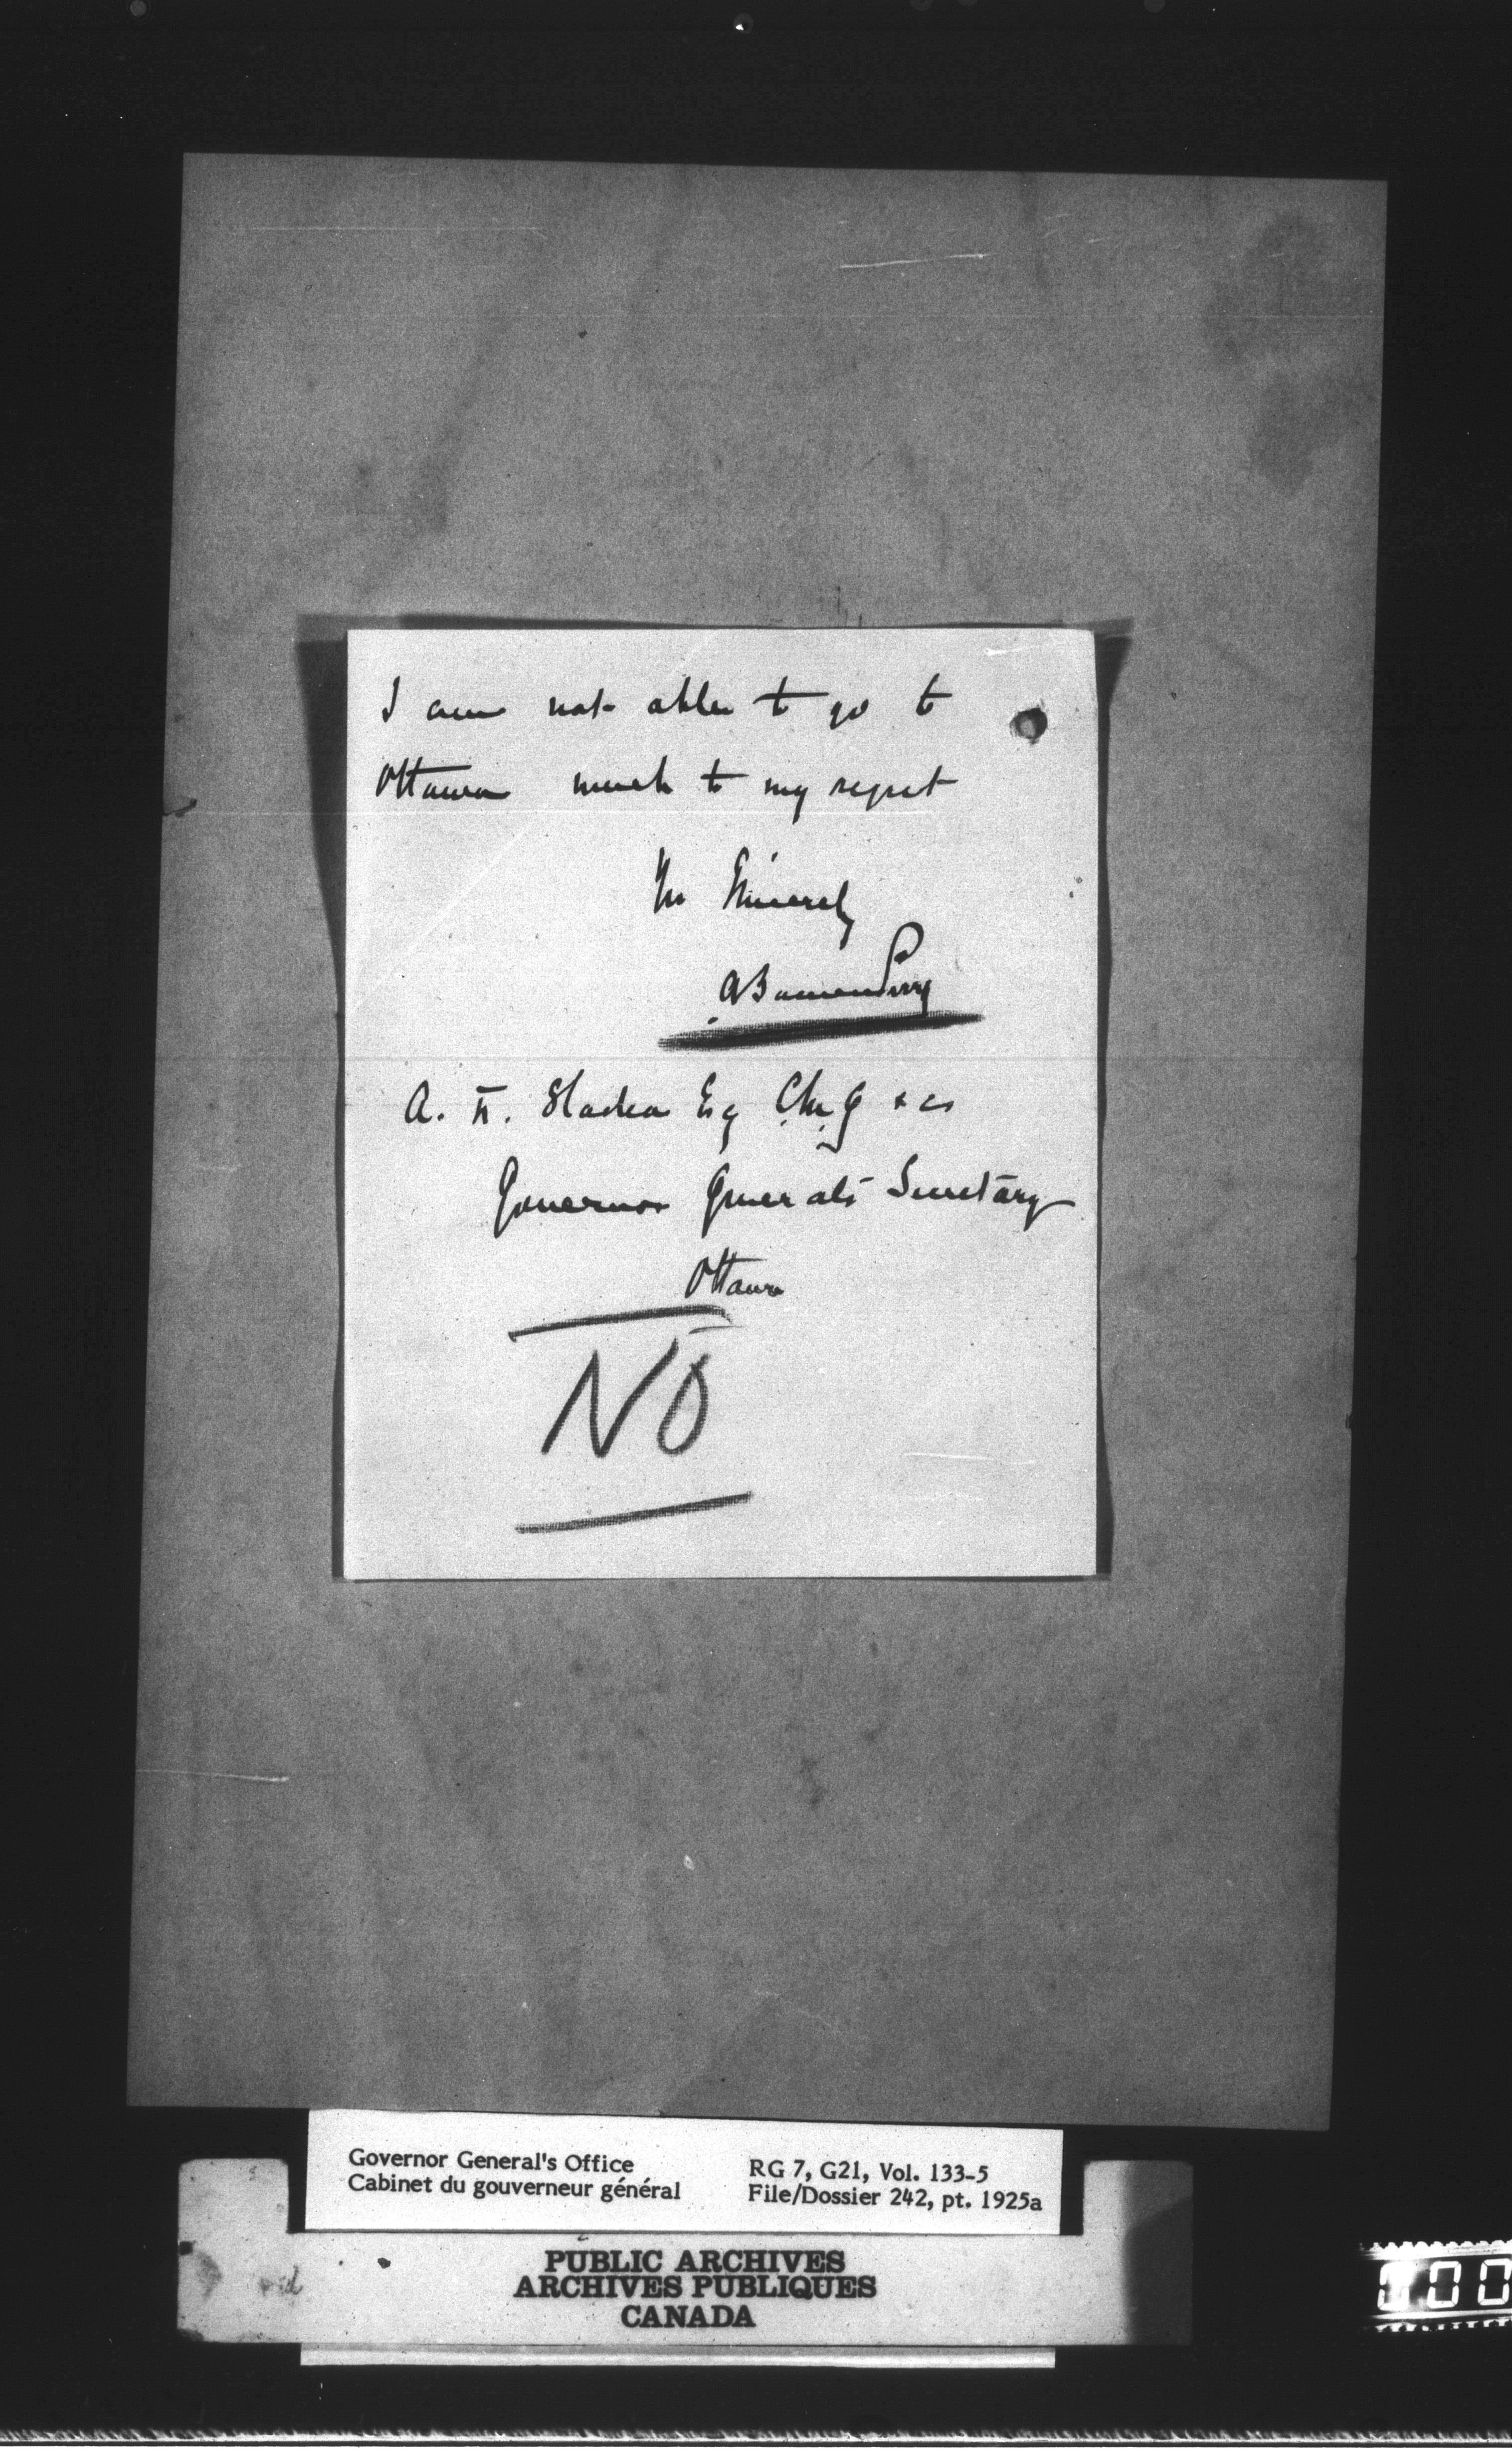 I am not able to go to
Ottawa much to my regret
Yrs Sincerely
A Bowen Perry
A. F. Sladen Esq C.M.G &c
Governor General's Secretary
Ottawa
NO
Governor General's Office
Cabinet du gouverneur général
RG 7, G21, Vol. 133-5
File/Dossier 242, pt. 1925a
PUBLIC ARCHIVES
ARCHIVES PUBLIQUES
CANADA